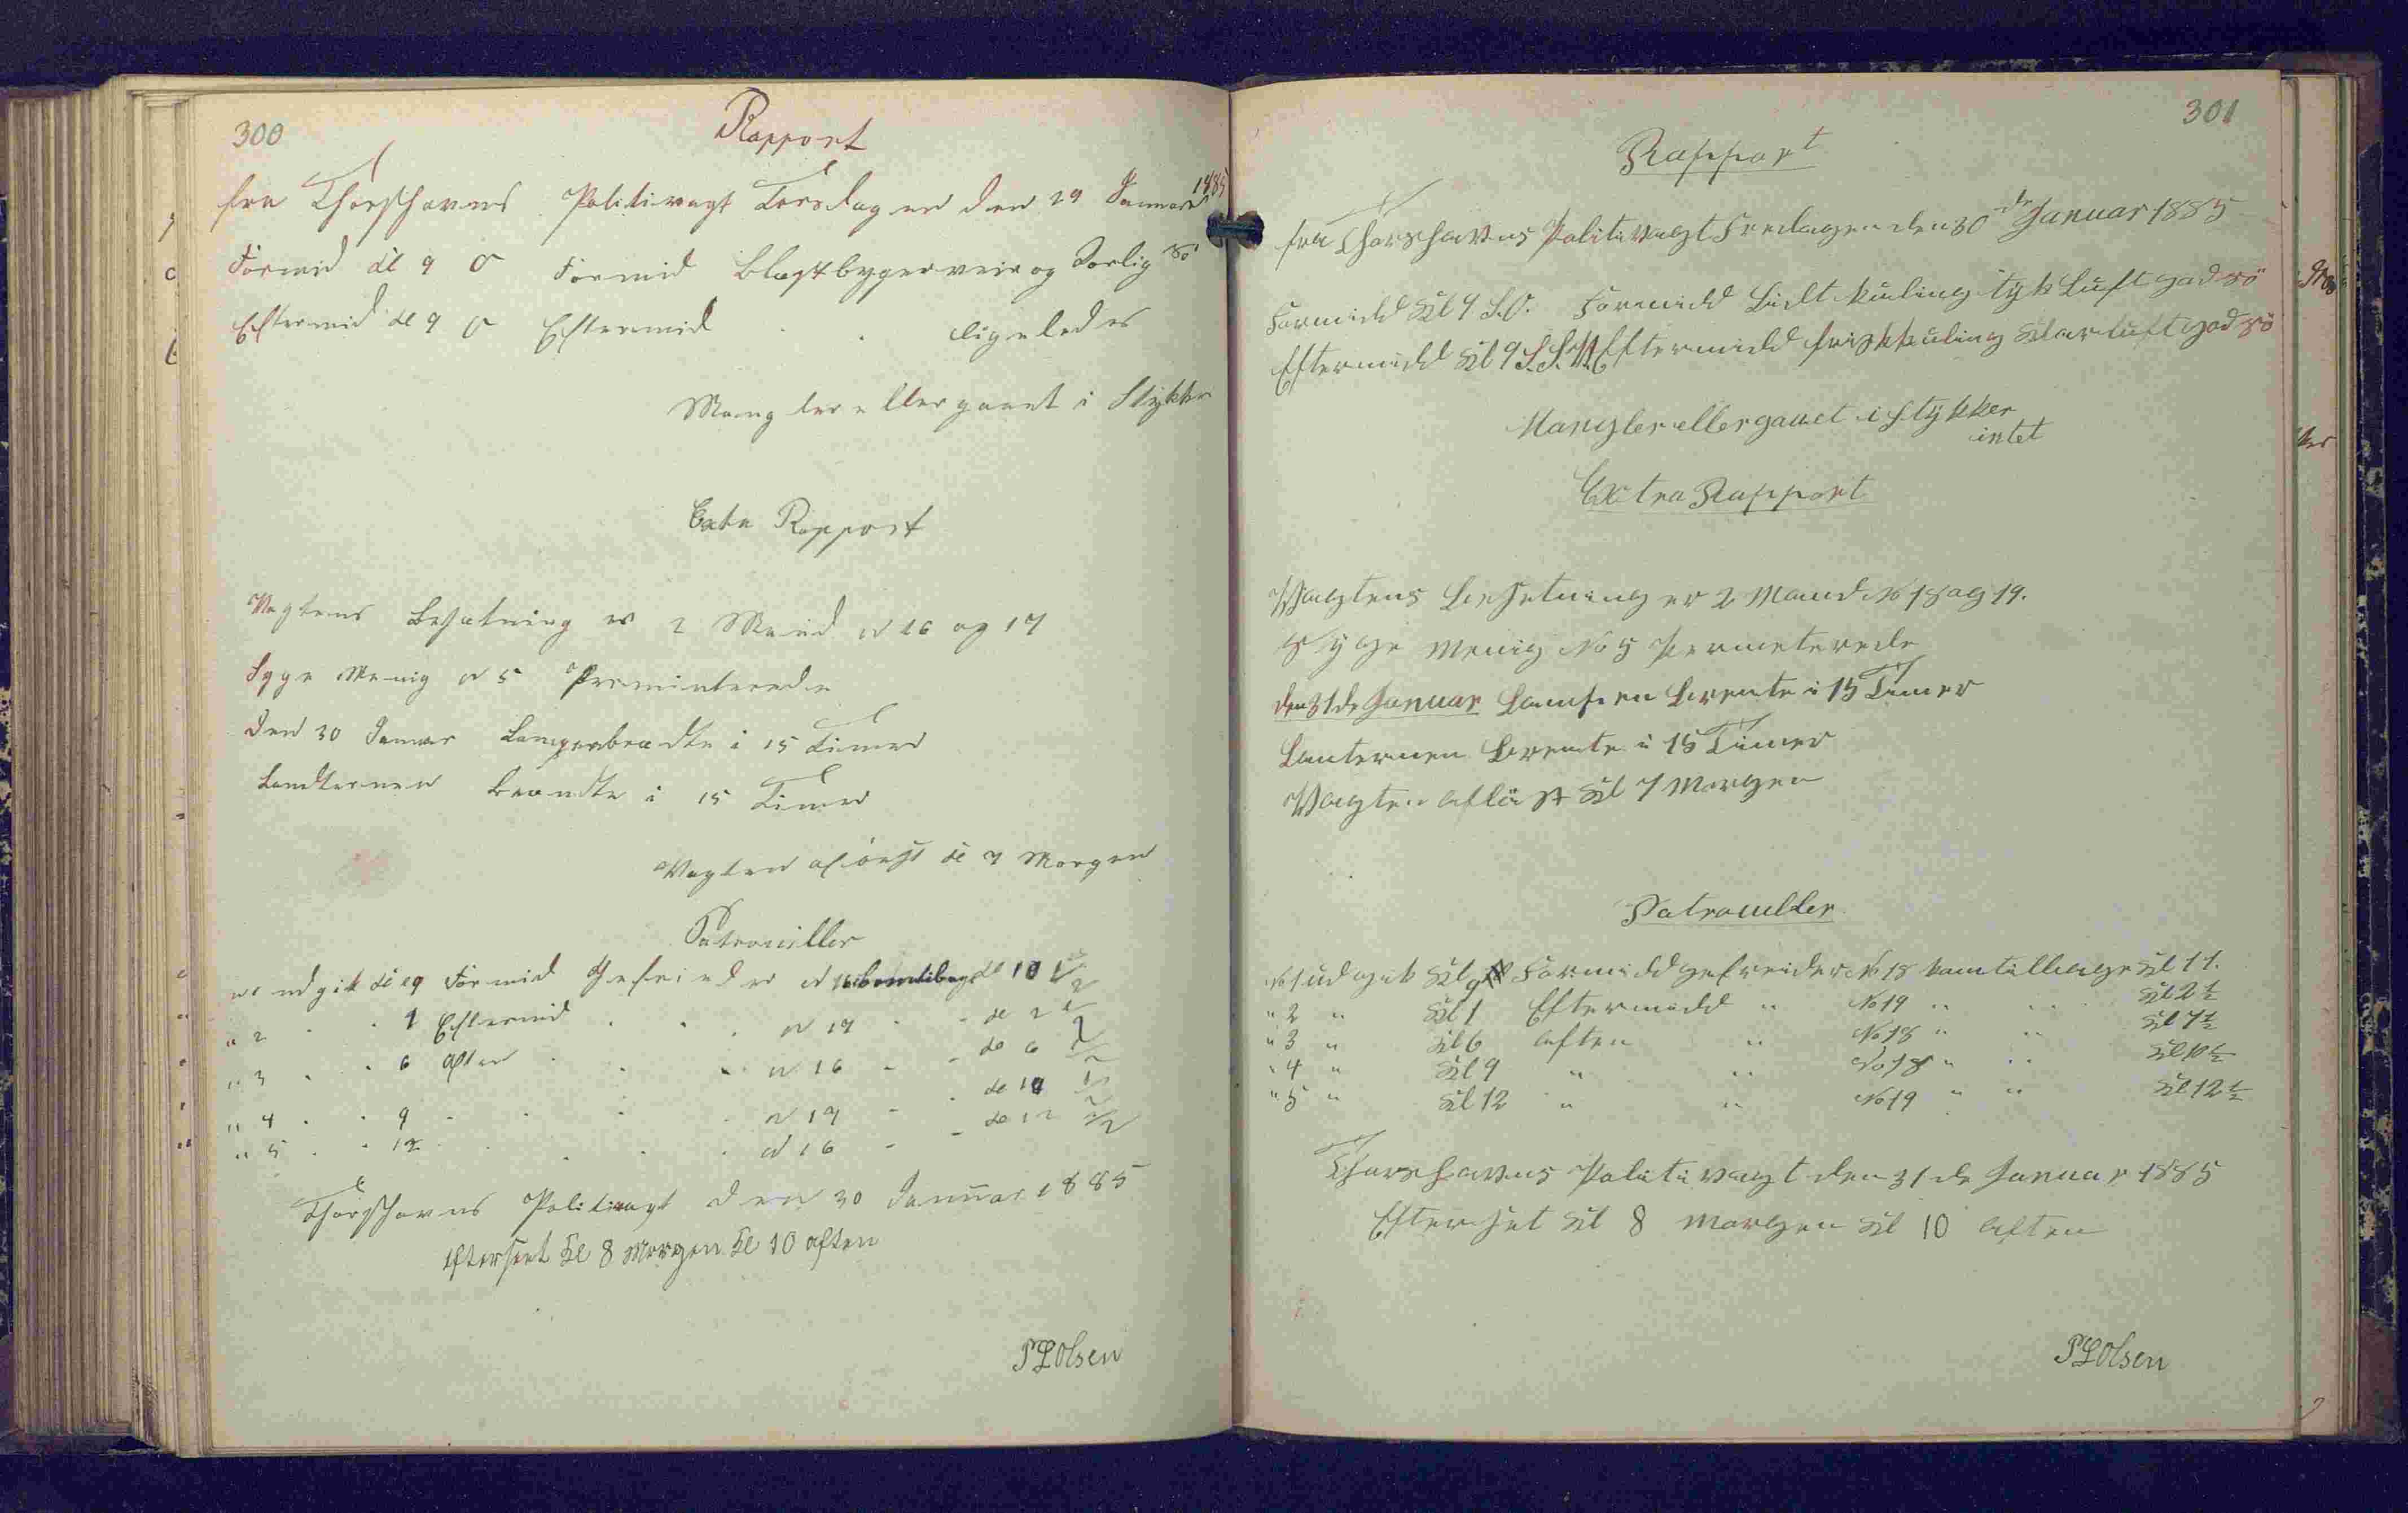 300
Rapport
fra Thorshavns Politivagt Torsdagen den 29 Januar 1885
Formid Kl 9 O Formid Blæstbygerveir og Dorlig Sö
Eftermid Kl 9 O Eftermid ligeledes
Mangler eller gaaet i Stykker
Exta Rapport
Vagtens Besætning er 2 Mand N 16 og 17
Syge Menig N 5 Perminterede
Den 30 Januar Lampenbrændte i 15 Timer
Landternen Brændte i 15 Timer
Vagten aflöst Kl 7 Morgen
Patrouiller
N1 udgik Kl 9 Formid Gefreider N 16 komtilbage Kl 10 1/2
" 2 " " 1 Eftermid " " N 17 " " Kl 2 1/2
" 3 " " 6 Aften " " N 16 " " Kl 6 1/2
" 4 " " 9 " " " N 17 " " Kl 10 1/2
" 5 " " 12 " " " N 16 " " Kl 12 1/2
Thorshavns Politivagt den 30 Januar 1885
Efterseet Kl 8 Morgen Kl 10 Aften
P L Olsen
301
Rapport
fra Thorshavns Politivagt Fredagen den 30de Januar 1885
Formidd Kl 9 S.O. Formidd Lidt kuling tyk Luft god sö
Eftermidd Kl 9 S.S.V. Eftermidd frisk kuling Klar luft god sö
Mangler eller gaaet i stykker
intet
Extra Rapport
Vagtens Besetning er 2 Mand No 18 og 19.
Syge Menig No 5 Permeterede
den 31de Januar Lampen Brente i 15 Timer
Lanternen Brente i 15 Timer
Vagten aflöst Kl 7 Morgen
Patrouller
No 1 udgik Kl 9 Formidd gefreider No 18 kom tilbage Kl 11.
" 2 " Kl 1 Eftermidd " No 19 " " Kl 2 1/2
" 3 " Kl 6 Aften " No 18 " " Kl 7 1/2
" 4 " Kl 9 " " No 18 " " Kl 10 1/2
" 5 " Kl 12 " " No 19 " " Kl 12 1/2
Thorshavns Politivagt den 31de Januar 1885
Efterset Kl 8 Morgen Kl 10 Aften
P L Olsen